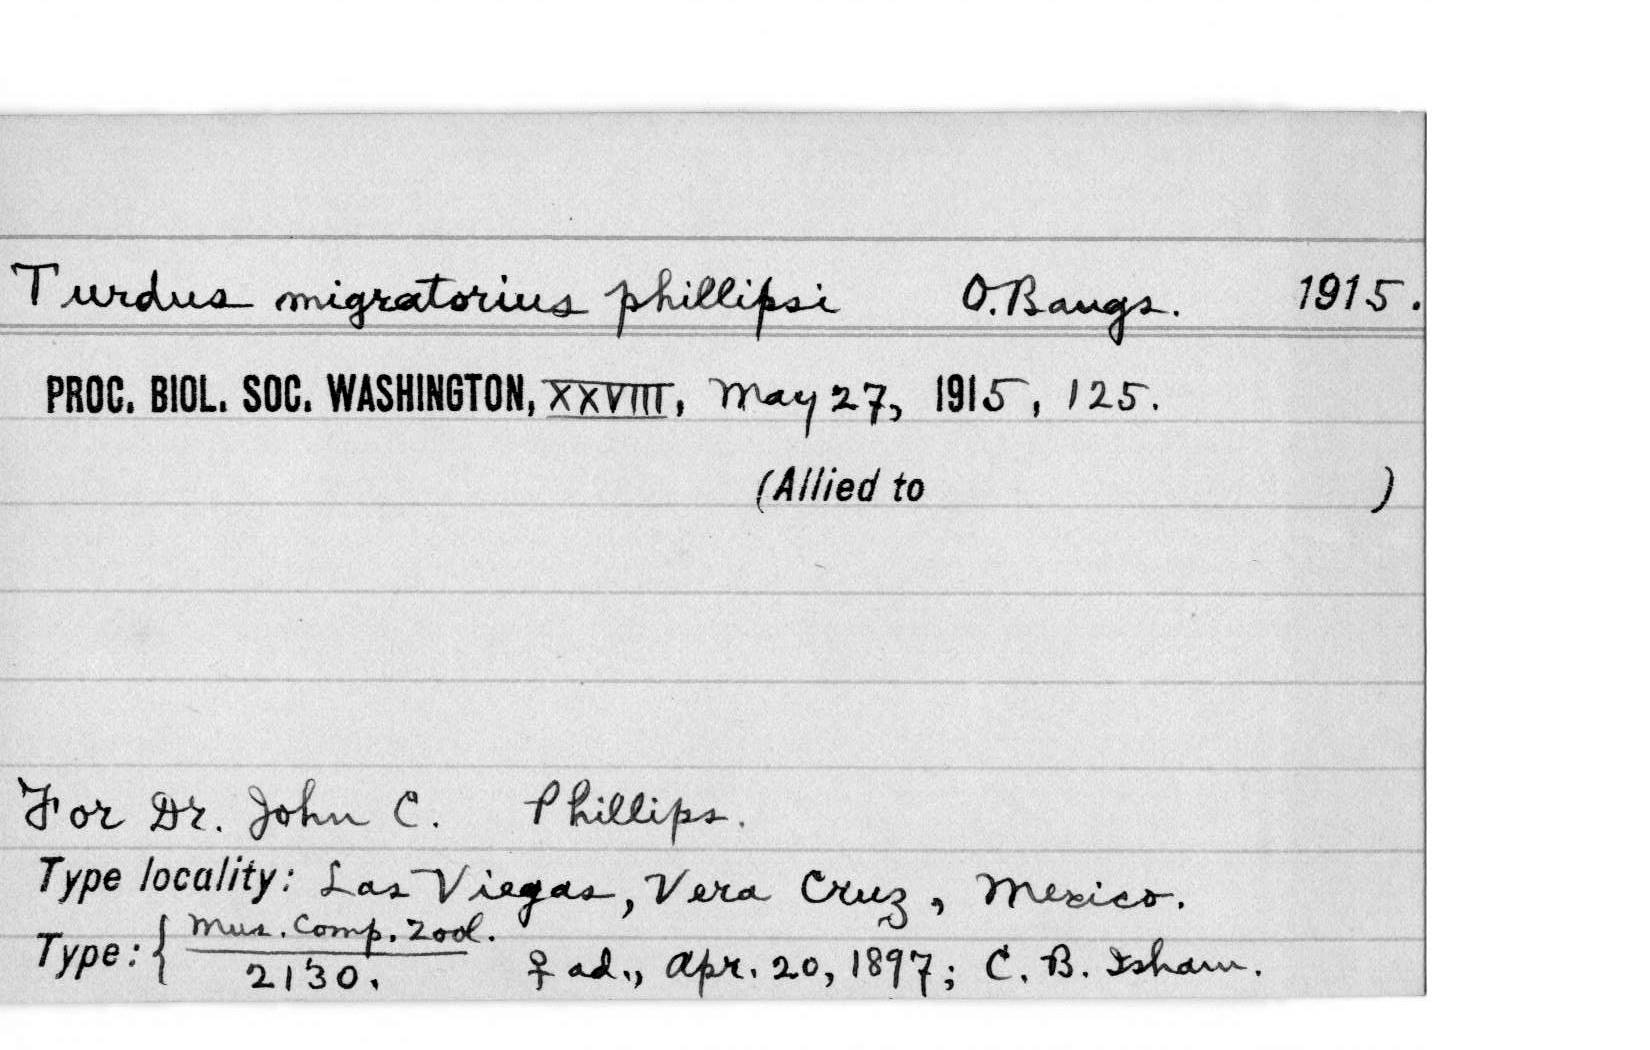 Turdus migratorius phillipsi O. Bangs. 1915.
PROC. BIOL. SOC. WASHINGTON, XXVIII, May 27, 1915, 125.
(Allied to )
For Dr. John C. Phillips.
Type locality: Las Viegas, Vera Cruz, Mexico.
Type: { Mus. Comp. Zool.
2130. ♀ ad., Apr. 20, 1897; C. B. Isham.